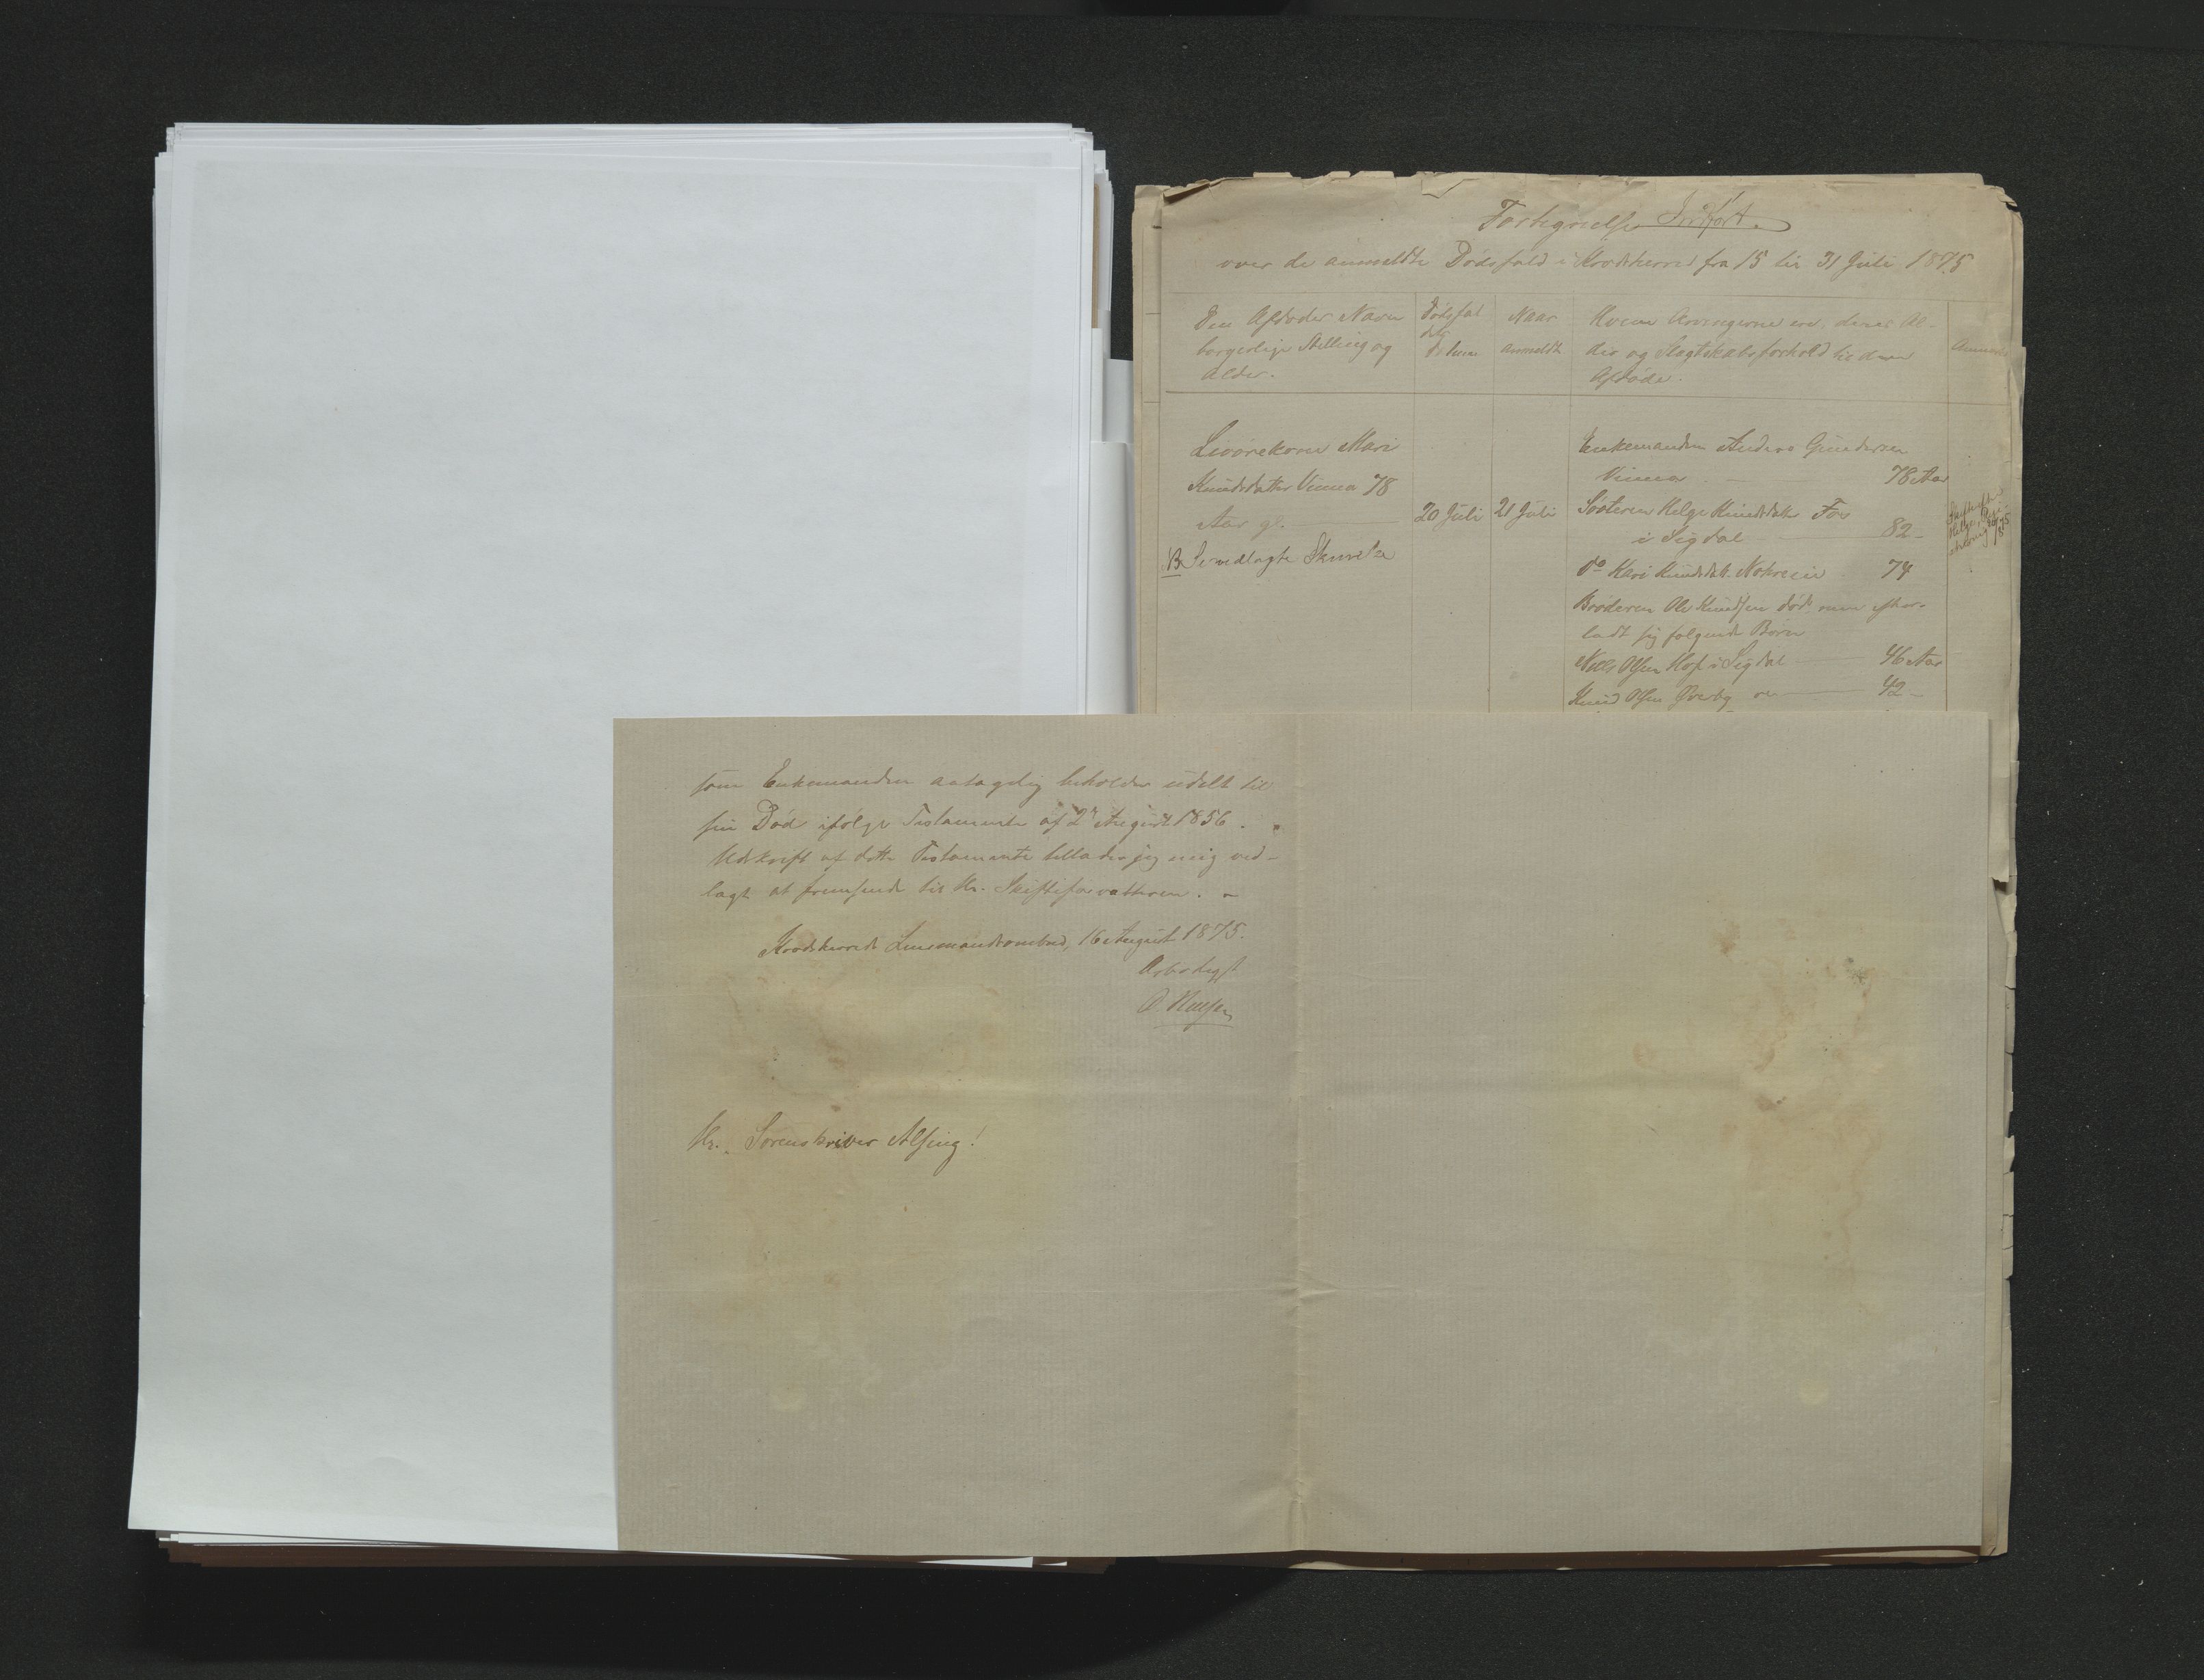 Fortegnelse Indført.
over de anmeldte Dødsfald i Krødsherred fra 15 til 31 Juli 1875
Den Afdødes Navn
borgerlige Stilling og
Alder.
Dødsfal
dets
Datum
Naar
anmeldt
Hvem Arvingerne ere, deres Al-
der og Slægtskabsforhold til den
Afdøde.
Livørekone Mari
Knudsdatter Vinna 78
Aar gl.
NB Se vedlagte Skrivelse
20 Juli
21 Juli
Enkemanden Anders Gundersen
Vinna 78 Aar
Søsteren Helge Knudsdatter Fos
i Sigdal 82 -
Do Kari Knudsdatt. 74
Broderen Ole Knudsen død, men efter-
ladt sig følgende Børn
Nils Olsen Hof i Sigdal 46 Aar
Knud Olsen Øverby 42 -
som Enkemanden antagelig beholder udelt til
sin Død ifølge Testamente af 2 August 1856.
Udskrift af dette Testamente tillader jeg mig ved-
lagt at fremsende til Hr. Skifteforvalteren.
Krødsherreds Lensmandsombud, 16 August 1875.
Ærbødigst
Hr. Sorenskriver Alsing!